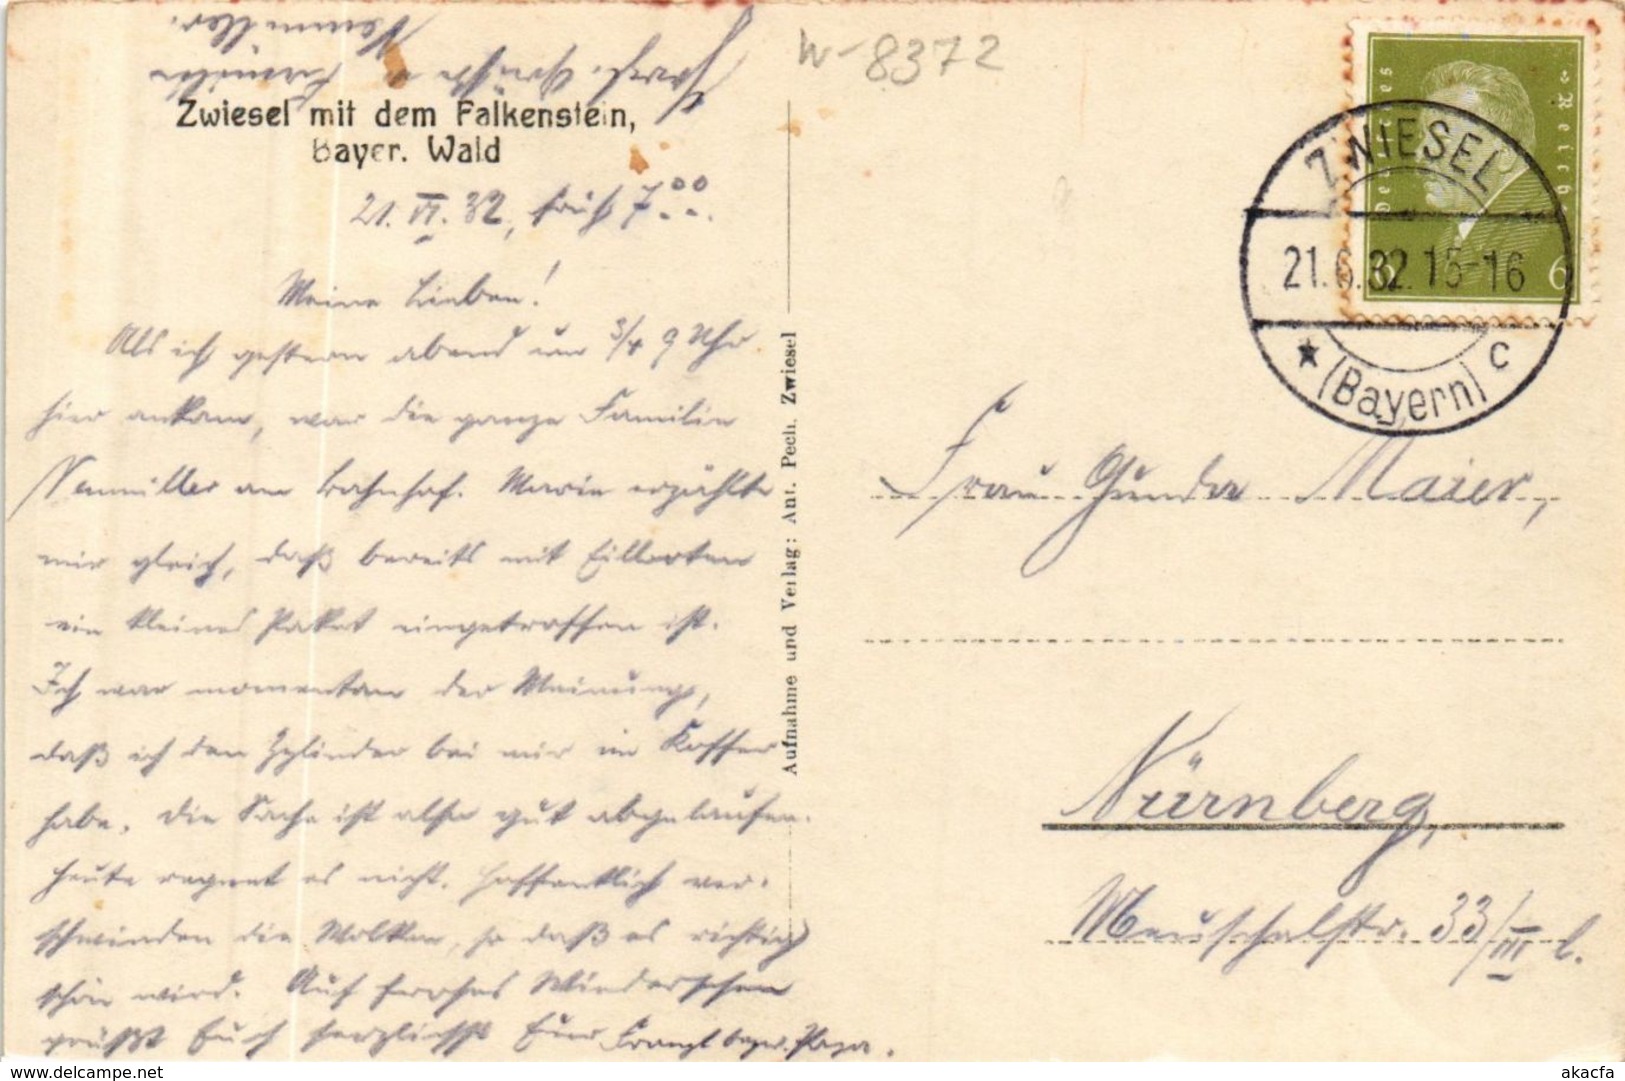 W-8372
Herzl. Grüße v. Familie
Neumüller.
Zwiesel mit dem Falkenstein,
Bayer. Wald
21. VI. 32, früh 7.00.
Meine Lieben!
Als ich gestern abend um 3/4 9 Uhr
hier ankam, war die ganze Familie
Neumüller am Bahnhof. Marie erzählte
mir gleich, daß bereits mit Eilboten
ein kleines Paket eingetroffen ist.
Ich war momentan der Meinung,
daß ich den Zylinder bei mir im Koffer
habe. Die Sache ist also gut abgelaufen.
Heute regnet es nicht. Hoffentlich ver-
schwinden die Wolken, so daß es richtig
schön wird. Auf frohes Wiedersehen
grüßt Euch herzlichst Euer Franzl bezw. Papa.
Aufnahme und Verlag: Ant. Pech. Zwiesel
Deutsches Reich
6 6
ZWIESEL
21.6.32.15-16
(Bayern) c
Frau Gunda Maier,
Nürnberg,
Meuschelstr. 33/III l.
delcampe.net
akacfa